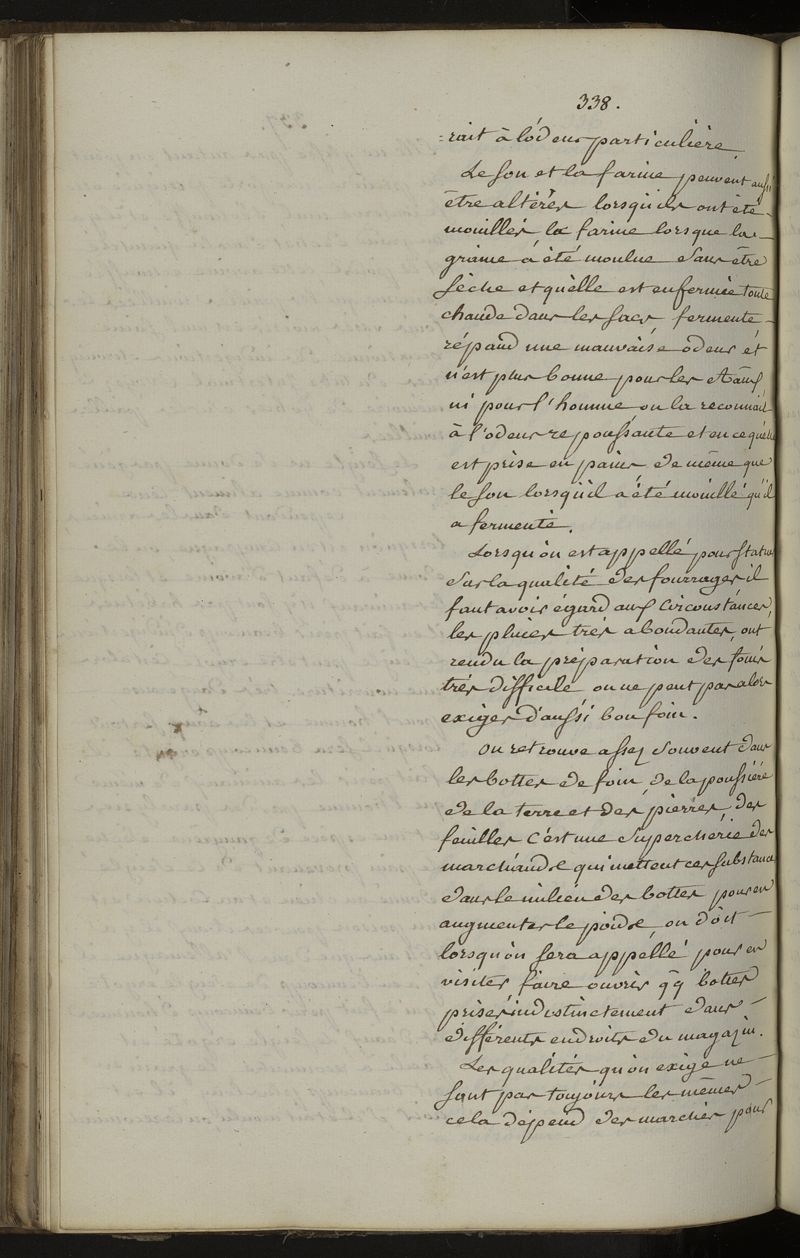 338.
=rait à l'ódeur particulière.
Le son et la farine peuvent aussi
être altérés lorsqu'ils ont été
mouillés, la farine lorsque la
graine a été moulue sans être
sèche et quèlle est enfermée toute
chaude dans les sacs fermente
répand une mauvaise odeur et
n'est plus bonne pour les
ni pour l'homme on la reconnait
à l'odeur repoussante et en ce quèlle
est prise en pains de même que
le son lorsqu'il a été mouillé qu'il
a fermenté.
Lorsqu'ón est appellé pour statuer
sur la qualité des fourrages il
faut avoir égard aux circonstances,
les pluies très abondantes, ont
rendu la préparation des foins
très difficile on ne peut pas alors
exiger d'aussi bon foin.
On retrouve assez souvent dans
les bottes de foin de la poussière
de la terre et des pierres, des
feuilles c'est une supercherie des
marchands qui mettent ces substances
dans le milieu des bottes pour en
augmenter le poids, on doit
lorsqu'ón sera appellé pour en
visiter faire ouvrir qq bottes
prises indistinctement dans
différents endroits du magazin.
Les qualités qu'on exige ne
sont pas toujours les mêmes
cela dépend des marchés pour